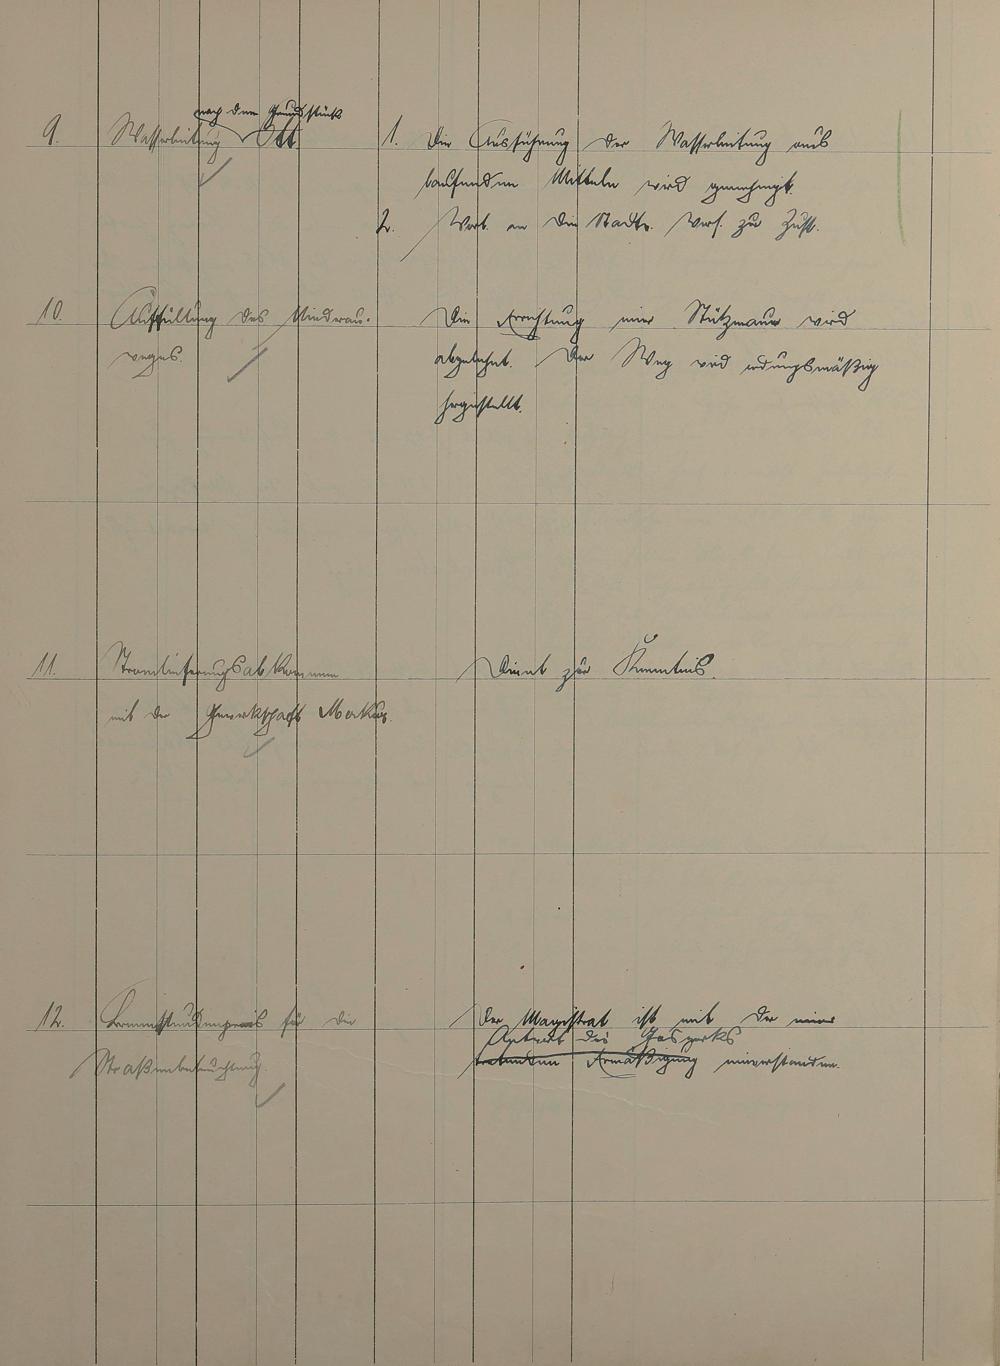 9. Wasserleitung nach dem Grundstück Ott.
1. Die Ausführung der Wasserleitung aus
laufenden Mitteln wird genehmigt.
2. Vorl. an die Stadtv. Vers. zur Zust.
10. Auffüllung des Niederau-
weges.
Die Errichtung einer Stützmauer wird
abgelehnt. Der Weg wird ordnungsmäßig
hergestellt.
11. Stromlieferungsabkommen
mit der Gewerkschaft Merkur.
Dient zur Kenntnis.
12. Brennstundenpreis für die
Straßenbeleuchtung.
Der Magistrat ist mit der
des Gaswerks
Ermäßigung einverstanden.